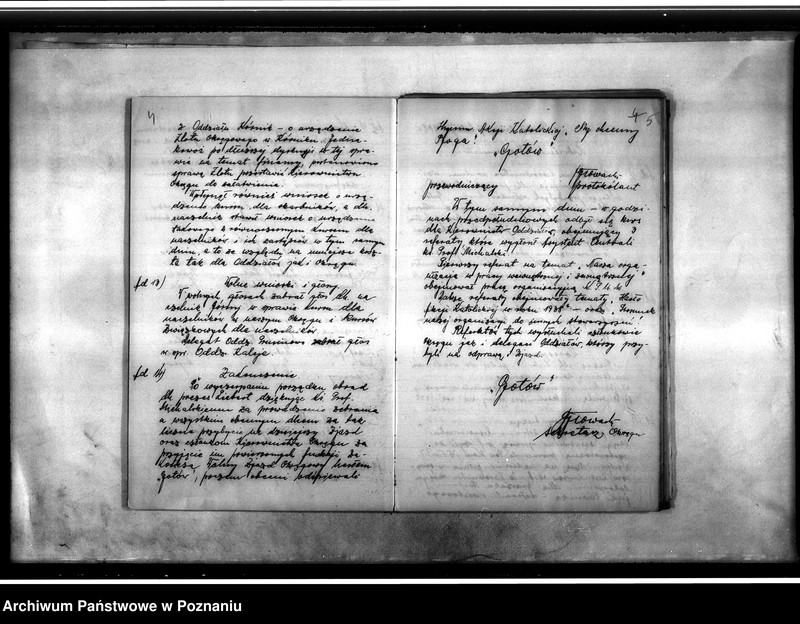 4
z Oddziału Kórnik – o urządzenie
Zlotu Okręgowego w Kórniku. Jedna-
kowoż po dłuższej dyskusji w tej spra-
wie na temat finansowy, postanowiono
sprawę Zlotu pozostawić Kierownictwu
Okręgu do załatwienia.
Wpłynął również wniosek o urzą-
dzenie kursu dla skarbników, a dh.
naczelnik stawił wniosek o urządzenie
takowego z równoczesnym kursem dla
naczelników i ich zastępców w tym samym
dniu, a to ze względu na mniejsze kosz-
ta tak dla Oddziałów jak i Okręgu.
fd 13) Wolne wnioski i głosy
W wolnych głosach zabrał głos dh. na-
czelnik w sprawie kursu dla
naczelników w naszym Okręgu i Kursów
Związkowych dla naczelników.
Delegat Oddz. zabrał głos
w spr. Oddz. Zaleje.
fd 14) Zakończenie
Po wyczerpaniu porządku obrad
dh prezes Liebert dziękując ks. Prof.
Michalskiemu za prowadzenie zebrania
a wszystkim obecnym dhom za tak
liczne przybycie na dzisiejszy Zjazd
oraz członkom Kierownictwa Okręgu za
przyjęcie im powierzonych funkcji za-
kończył Walny Zjazd Okręgowy hasłem
"Gotów", poczem obecni odśpiewali
4 5
Hymn Akcji Katolickiej. "My chcemy
Boga".
"Gotów"
przewodniczący protokolant
W tym samym dniu – w godzi-
nach przedpołudniowych odbył się kurs
dla Kierownictw Oddziałów, obejmujący 3
referaty, które wygłosił Asystent Centrali
ks. Prof. Michalski.
Pierwszy referat na temat "Nasza orga-
nizacja w pracy wewnętrznej i zewnętrznej"
obejmował pracę organizacyjną K.S.M.M.
Dalsze referaty obejmowały tematy "Hasło
Akcji Katolickiej w roku 193" – oraz "Stosunek
naszej organizacji do innych stowarzyszeń".
Referatów tych wysłuchali członkowie
Okręgu jak i delegaci Oddziałów, którzy przy-
byli na odprawę i Zjazd.
"Gotów"
Sekretarz Okręgu
Archiwum Państwowe w Poznaniu